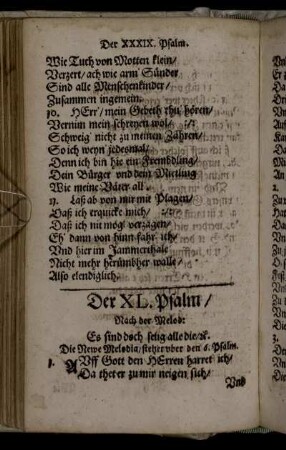 Der XXXIX. Psalm.
Wie Tuch von Motten klein/
Verzert/ ach wie arm Sünder
Sind alle Menschenkinder/
Zusammen ingemein.
10. HErr/ mein Gebeth thu hören/
Vernim mein schreyen wol/ :/:
Schweig nicht zu meinen Zähren/
So ich weyn jedesmal/
Denn ich bin hie ein Frembdling/
Dein Bürger vnd dein Mietling
Wie meine Väter all.
11. Laß ab von mir mit Plagen/
Daß ich erquicke mich/ :/:
Daß ich nit mög verzagen/
Eh' dann von hinn fahr ich/
Vnd hier im Jammerthale
Nicht mehr herümbher walle/
Also elendiglich.
Der XL. Psalm/
Nach der Melod:
Es sind doch selig alle die/ ꝛc.
Die Newe Melodia/ stehet vber den 6. Psalm.
1. AVff Gott den HErren harret ich/
Da thet er zu mir neigen sich/
Vnd